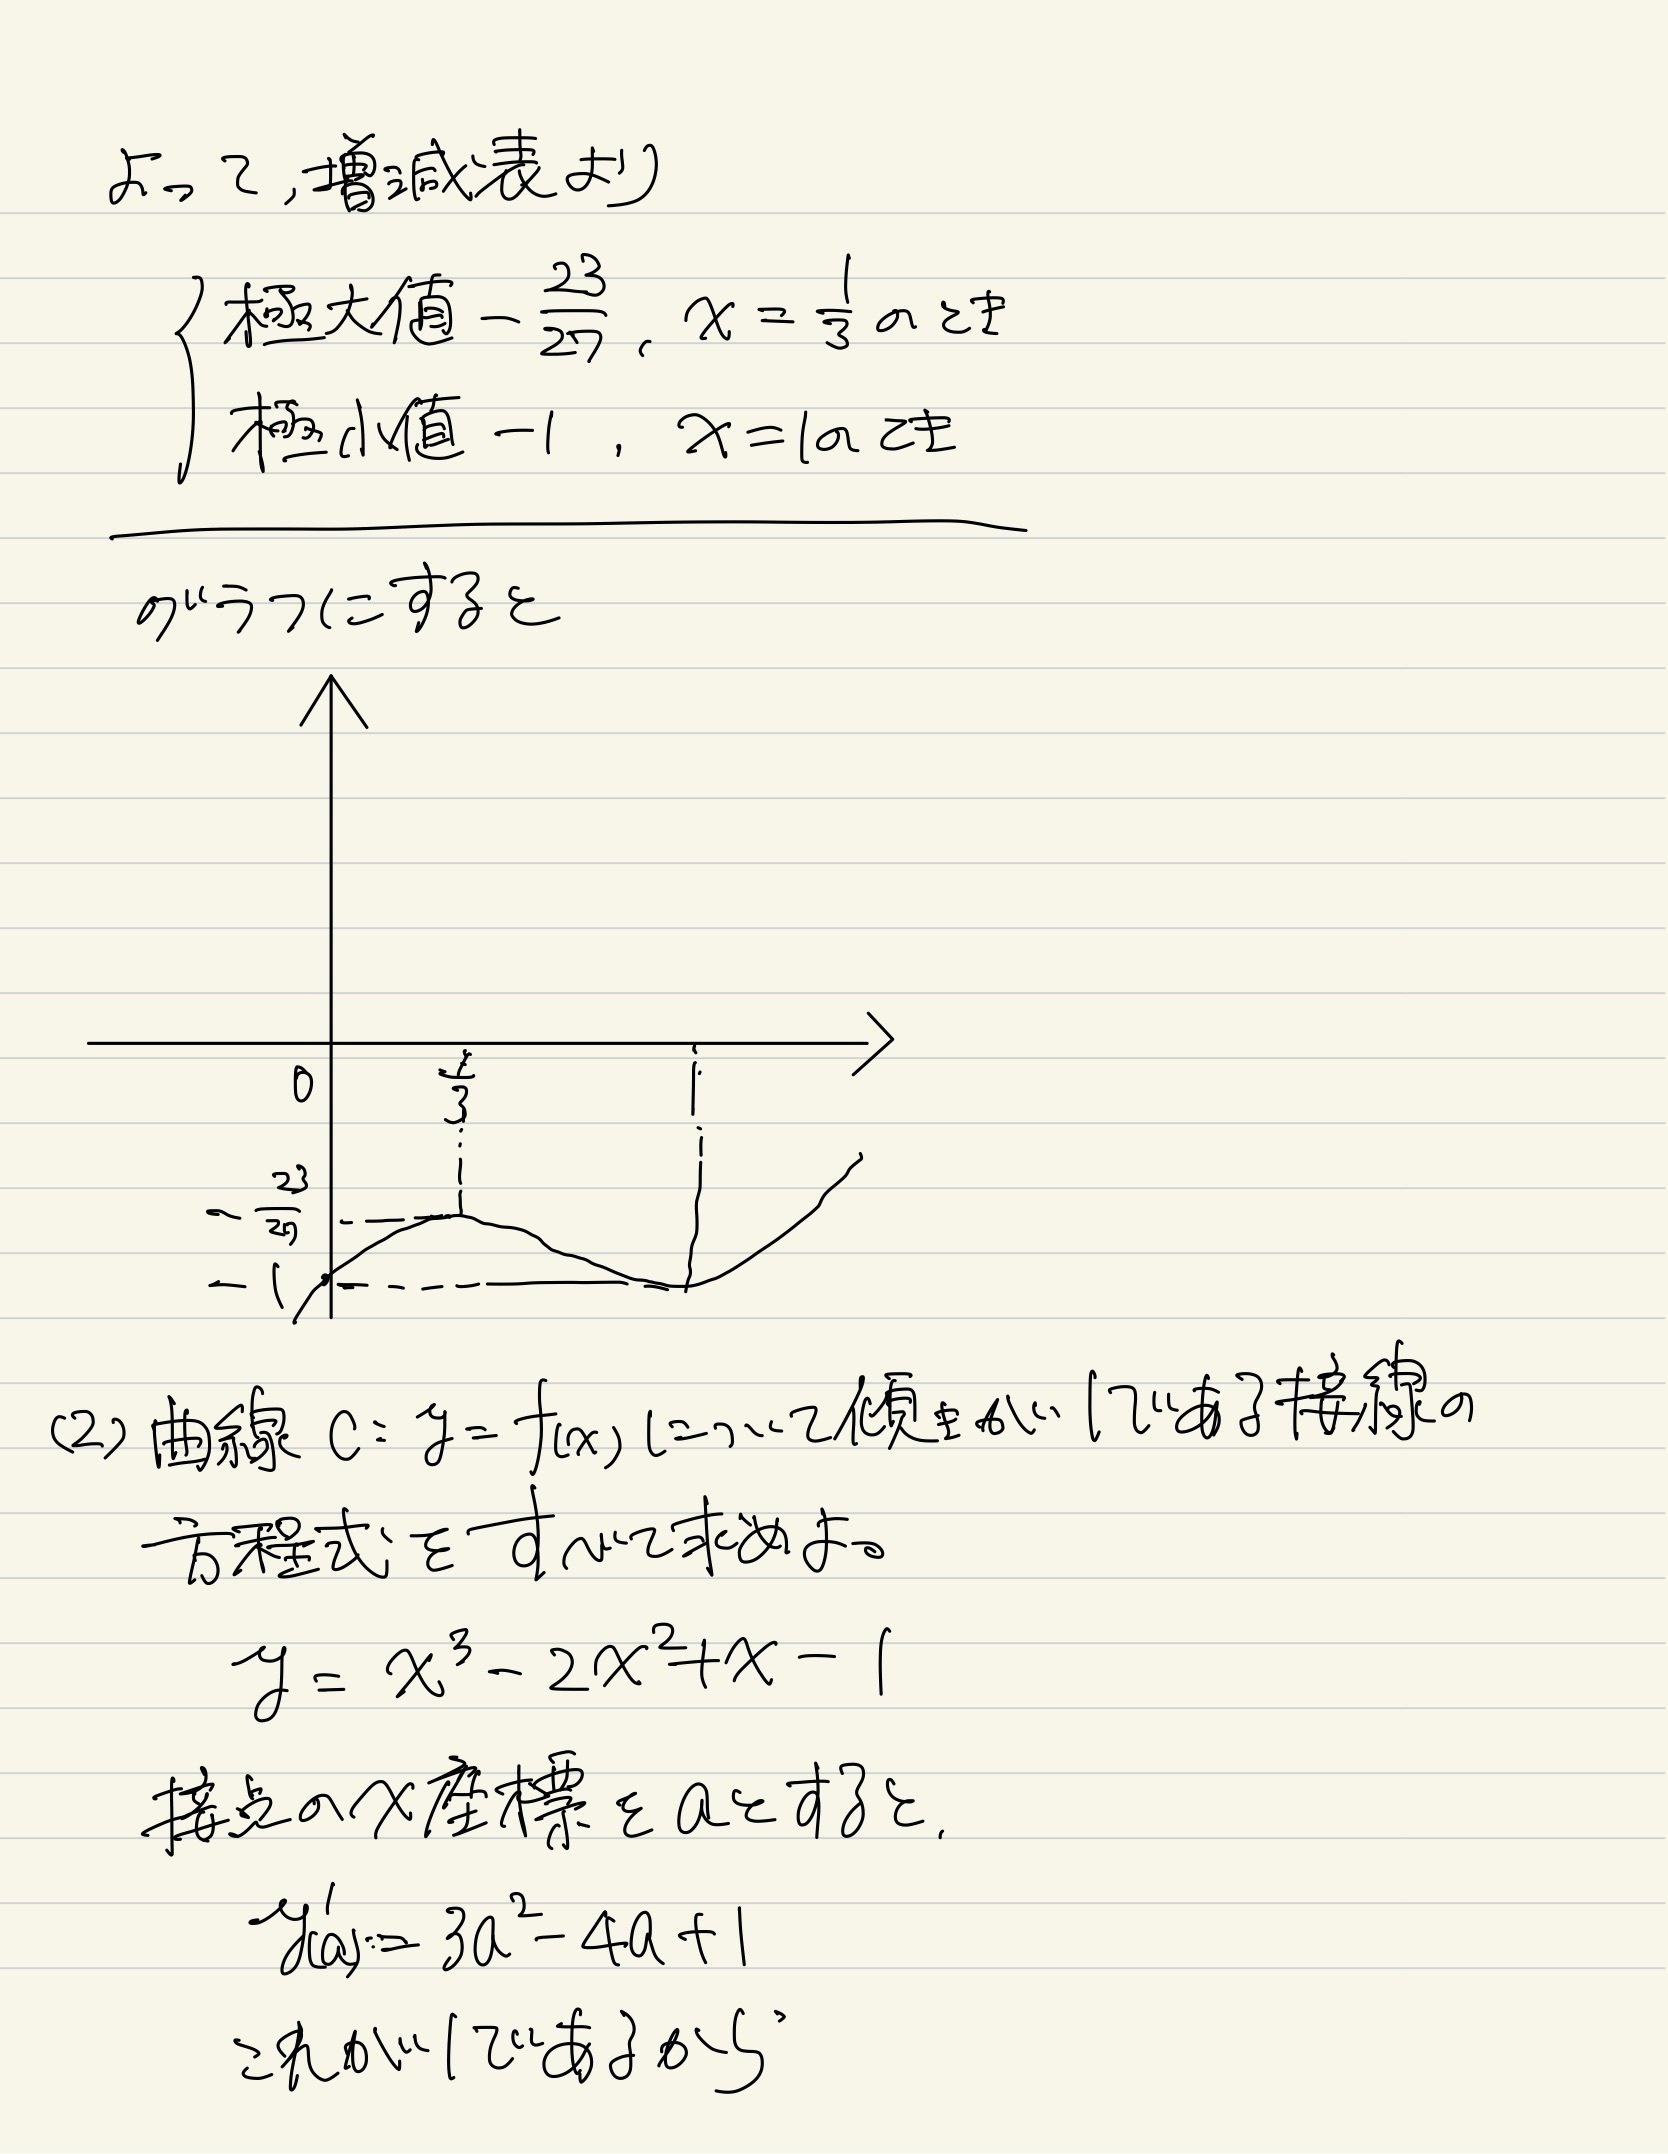 よって,増減表より
極大値 -23/27, x = 1/3 のとき
極小値 -1, x=1のとき
グラフにすると
0 1/3 1
-23/27
-1
(2) 曲線 C: y = f(x) について傾きが1である接線の
方程式をすべて求めよ。
y = x³ - 2x² + x - 1
接点のx座標をaとすると,
y'(a) = 3a² - 4a + 1
これが1であるから